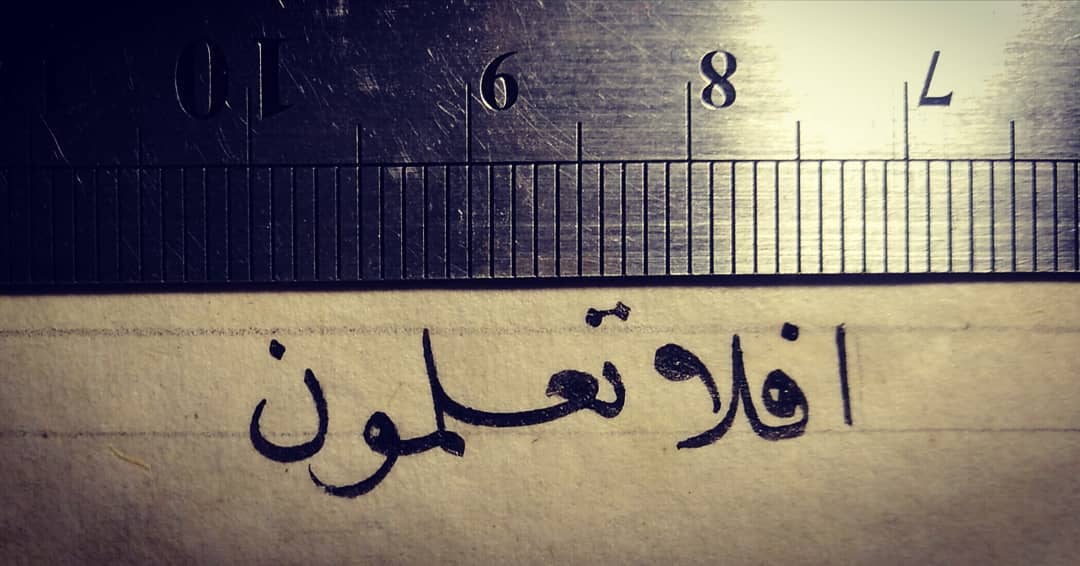 10 9 8 7
افلا تعلمون